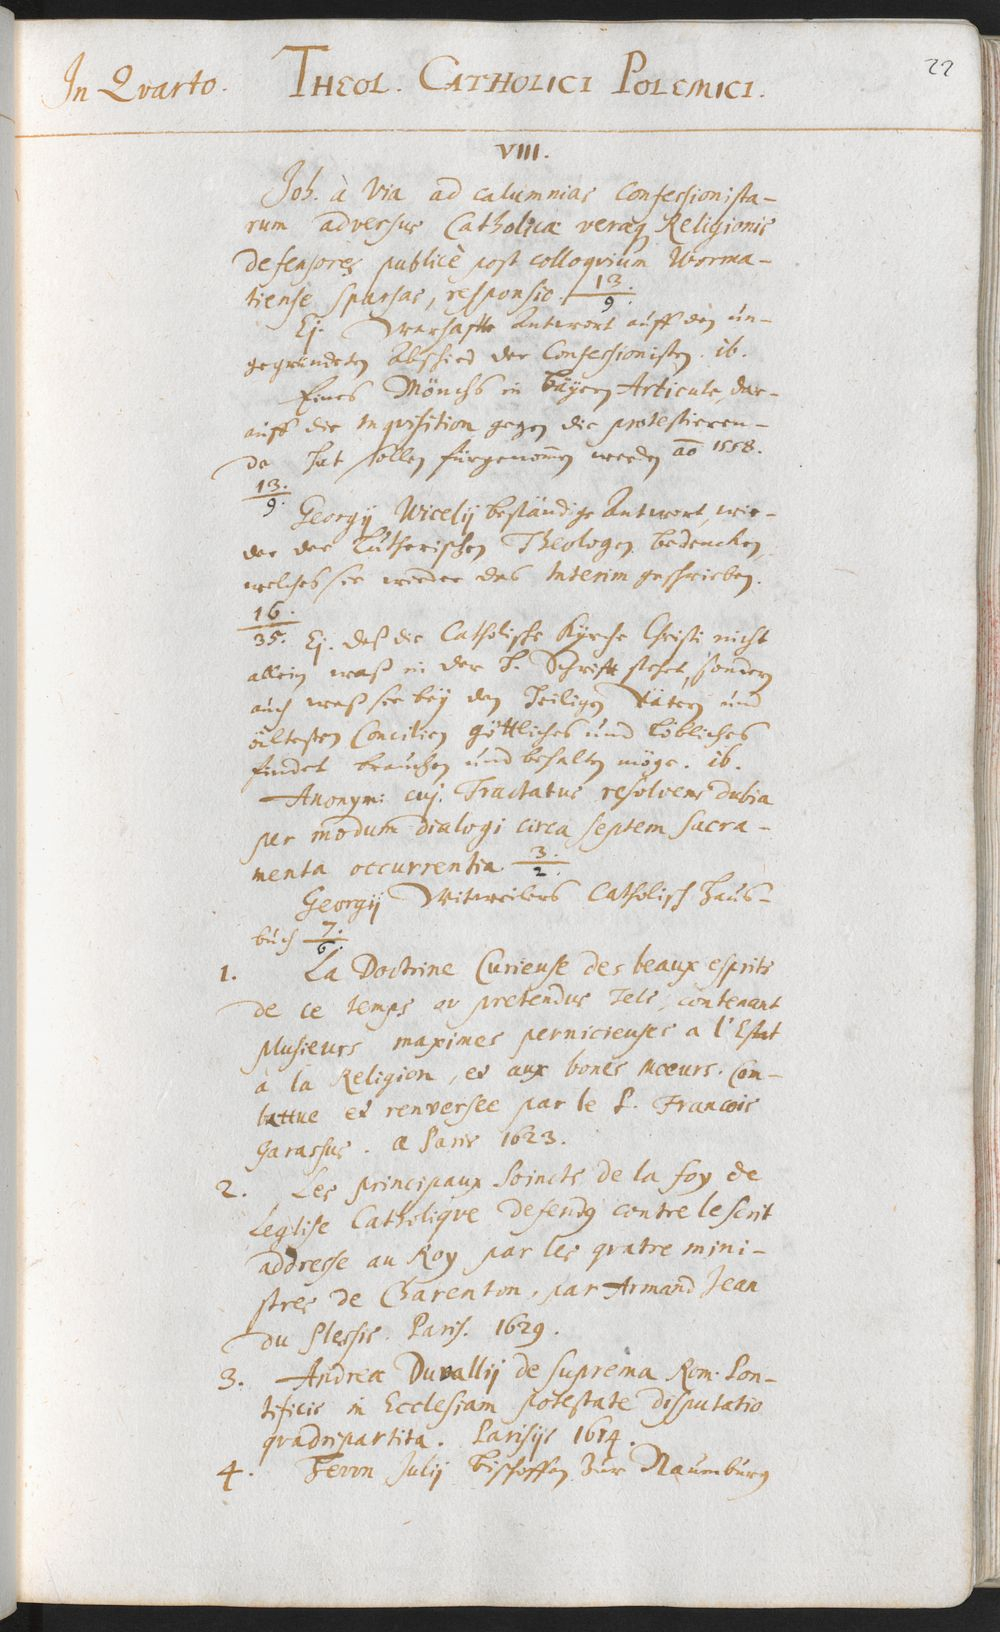 22
In Qvarto. THEOL. CATHOLICI POLEMICI.
VIII.
Joh. à Via ad calumnias Confessionista-
rum adversus Catholicæ veræq Religionis
defensores publicè post colloqvium Worma-
tiense sparsas, responsio. 13./9.
Ej. Warhaffte Antwort auff den un-
gegründeten Abschied der Confessionisten. ib.
Eines Mönchs in Bäyern Articule, dar-
auff die Inqvisition gegen die protestieren-
de hat sollen fürgenom̅en werden ao 1558.
13./9.
Georgij Wicelij beständige Antwort, wie-
der der Lutherischen Theologen bedencken,
welches sie wieder das Interim geschrieben.
16./35. Ej. daß die Catholische Kyrche Christi nicht
allein waß in der H. Schrifft stehet, sondern
auch waß sie bey den Heiligen Vätern und
ältesten Concilien göttliches und löbliches
findet brauchen und behalten möge. ib.
Anonymi cuj. Tractatus resolvens dubia
per modum dialogi circa septem sacra-
menta occurrentia. 3./2.
Georgij Witweilers Catholisch Haus-
buch 7./6.
1. La Doctrine Curieuse des beaux esprits
de ce temps ov pretendus Tels, contenant
plusieurs maximes pernicieuses a l'Estat
à la Religion, et aux bones mœurs. Com-
battue et renversee par le P. Francois
Garassus. a Paris 1623.
2. Les principaux Poincts de la foy de
Leglise Catholiqve defendq contre lescrit
addresse au Roy par les qvatre mini-
stres de Charenton, par Armand Jean
du Plessis. Paris. 1629.
3. Andreæ Duvallij de suprema Rom. Pon-
tificis in Ecclesiam potestate disputatio
qvadripartita. Parisijs 1614.
4. Herrn Julij Bischoffen zur Naumburg